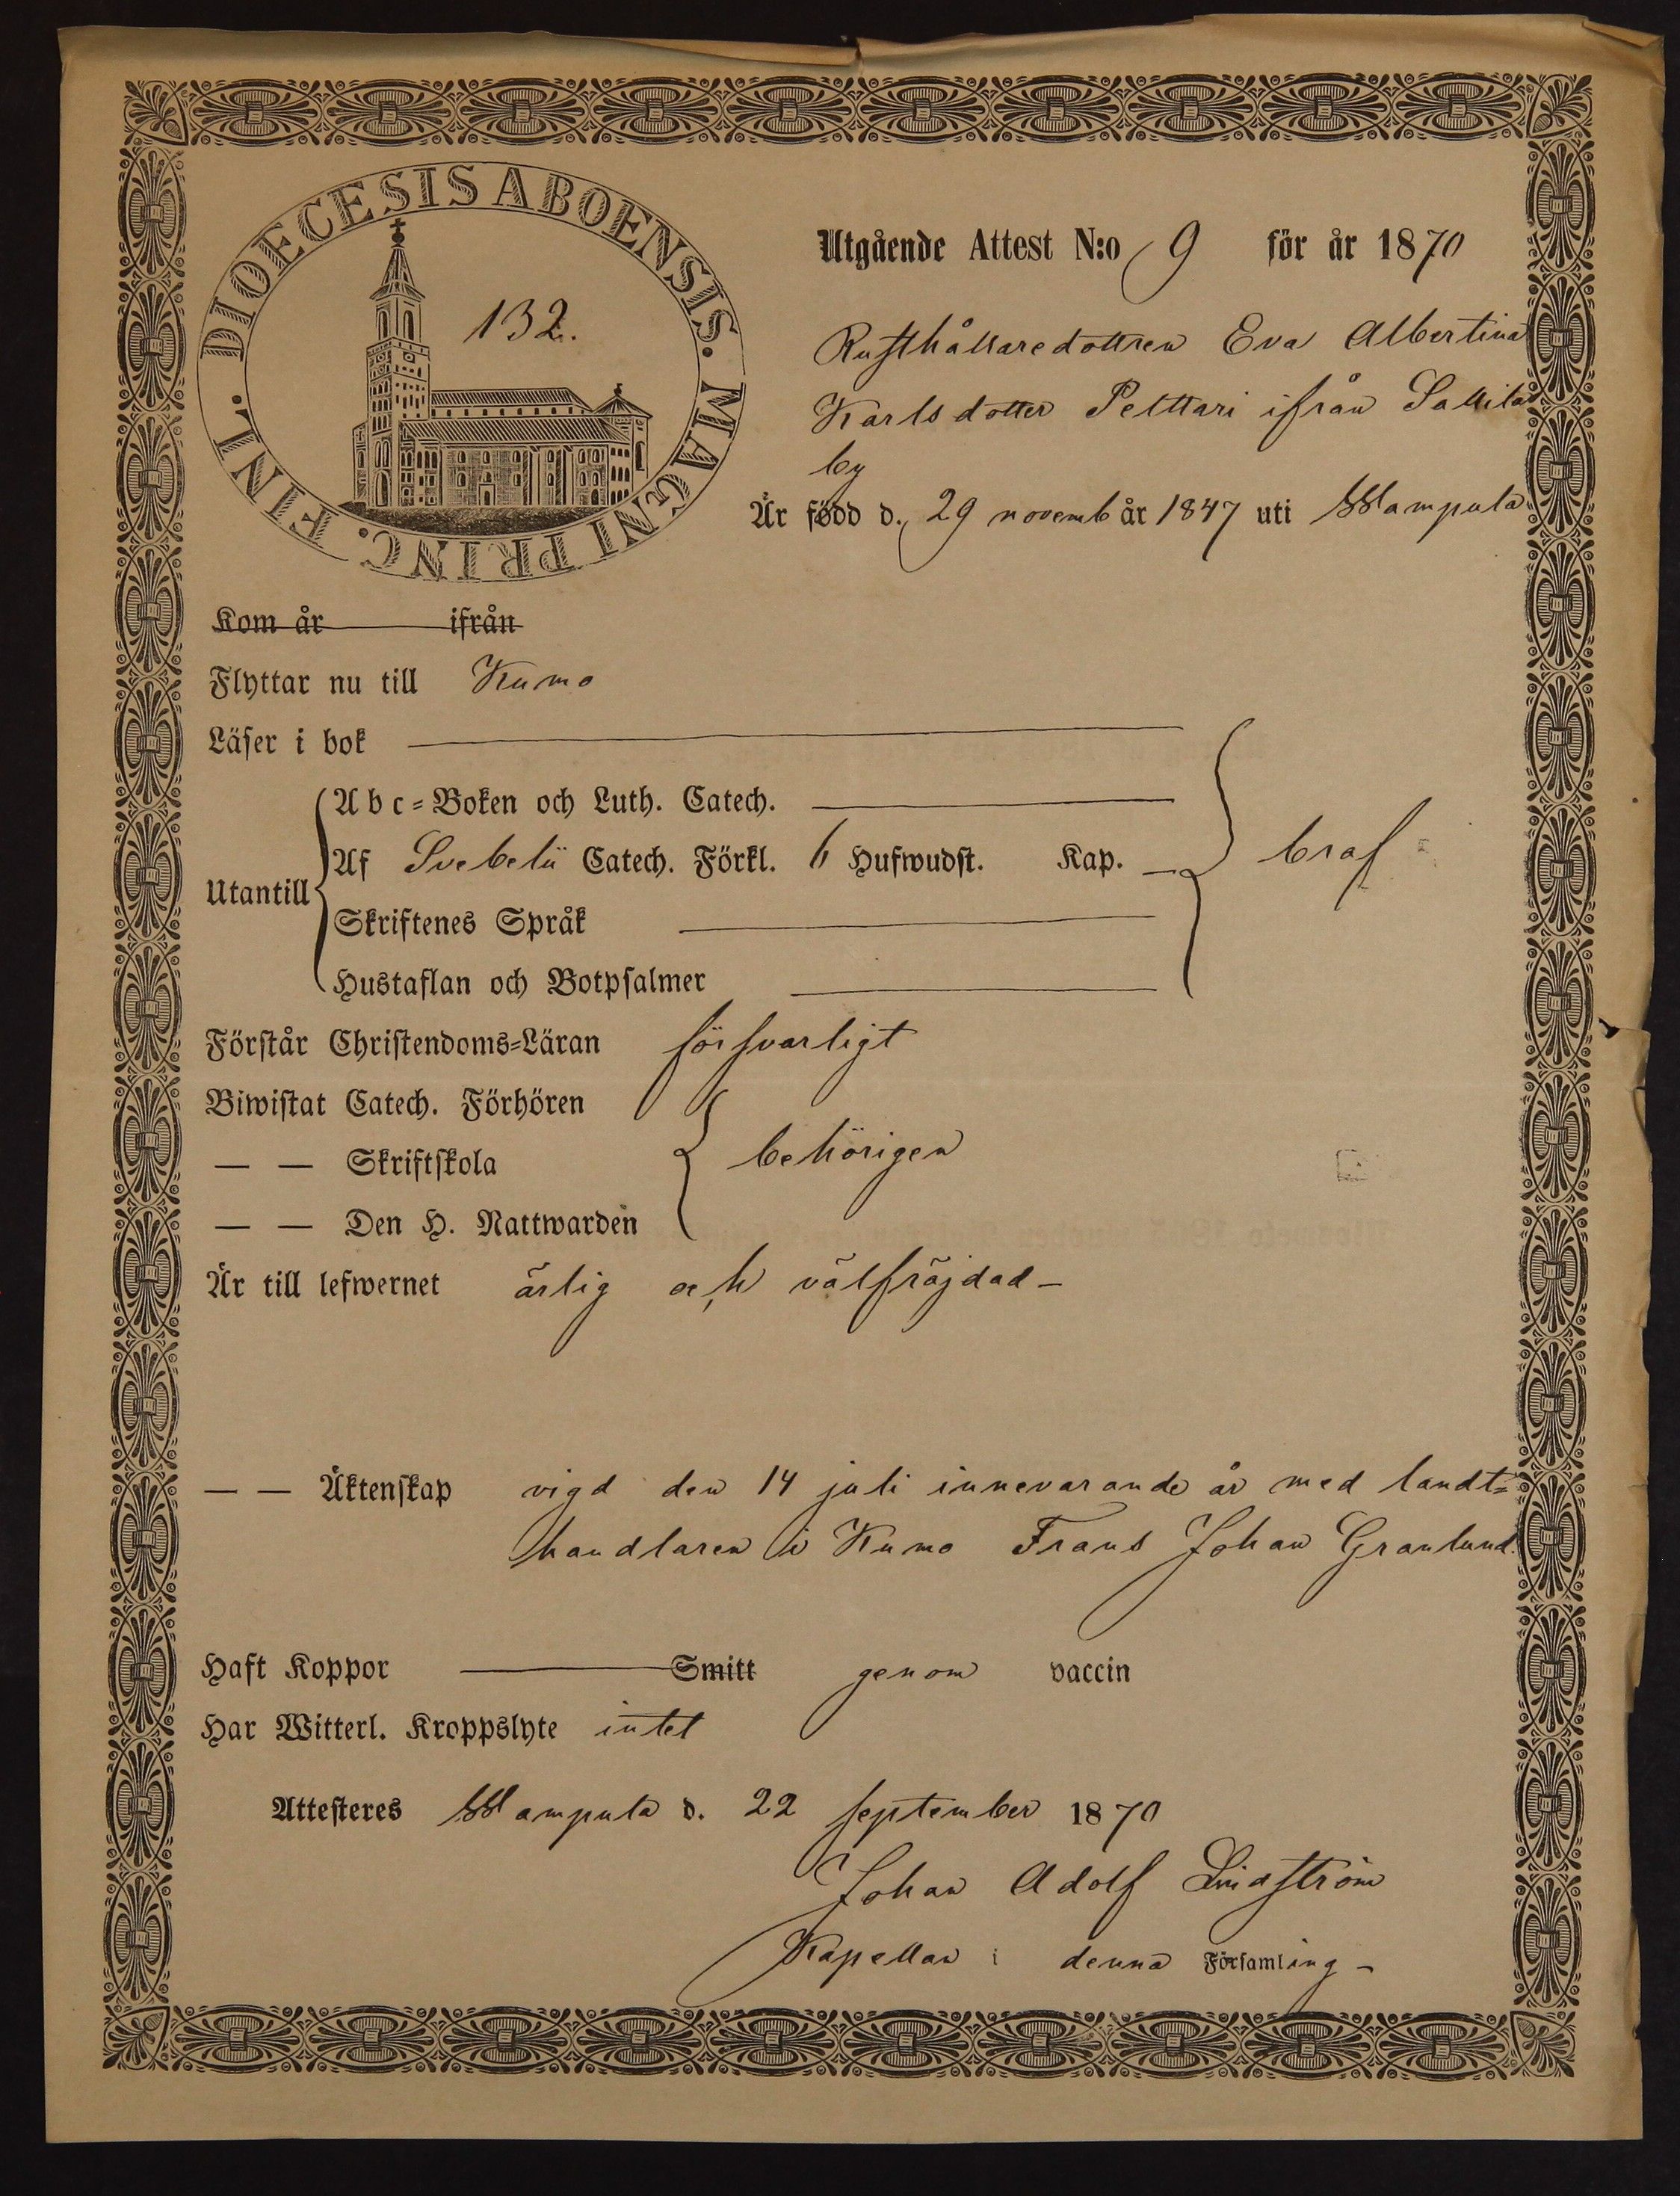 DIOECESIS ABOENSIS. MAGNI PRINC. FINL.
132.
Utgående Attest N:o 9 för år 1870
Rusthållaredottren Eva Albertina
Karlsdotter Pelttari ifrån Sallila
by
Är född d. 29 novemb år 1847 uti Wampula
Kom år ifrån
Flyttar nu till Kumo
Läser i bok
Abc=Boken och Luth. Catech.
Af Svebelii Catech. Förkl. 6 Hufwudst. Kap. braf
Utantill
Skriftenes Språk
Hustaflan och Botpsalmer
Förstår Christendoms=Läran försvarligt
Biwistat Catech. Förhören
— — Skriftskola behörigen
— — Den H. Nattwarden
Är till lefwernet ärlig och välfräjdad —
— — Äktenskap vigd den 14 juli innevarande år med landt=
handlaren i Kumo Frans Johan Granlund.
Haft Koppor Smitt genom vaccin
Har Witterl. Kroppslyte intet
Attesteres Wampula d. 22 september 1870
Johan Adolf Lindström
Kapellan i denna Församling —